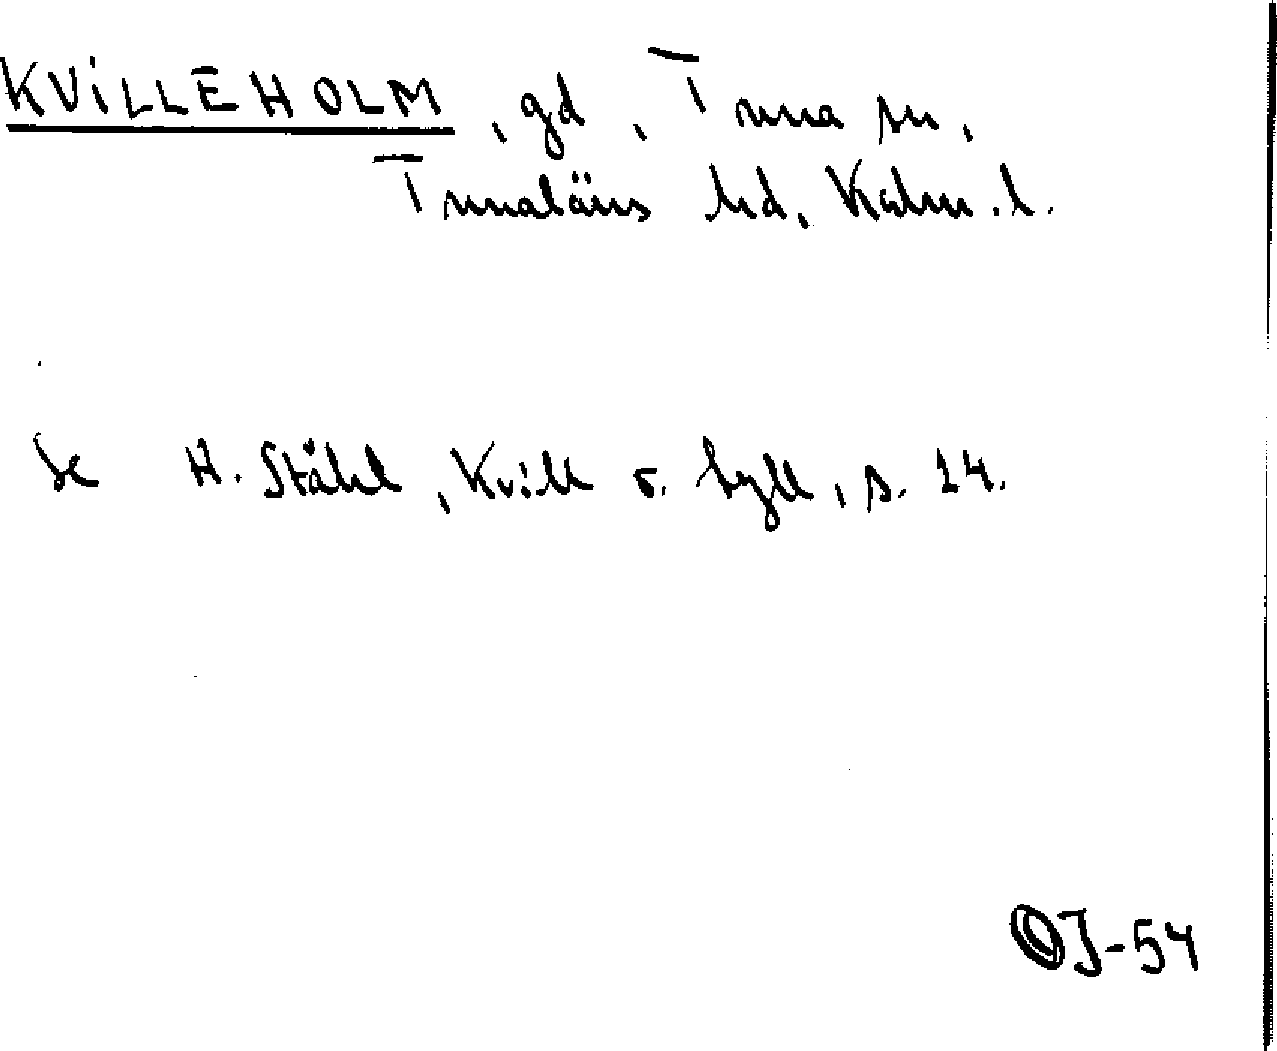 KVILLEHOLM, gd, Tuna sn,
Tunaläns hd, Kalm. l.
Se H. Ståhl, Kvill o. Syll, s. 14.
OJ-54